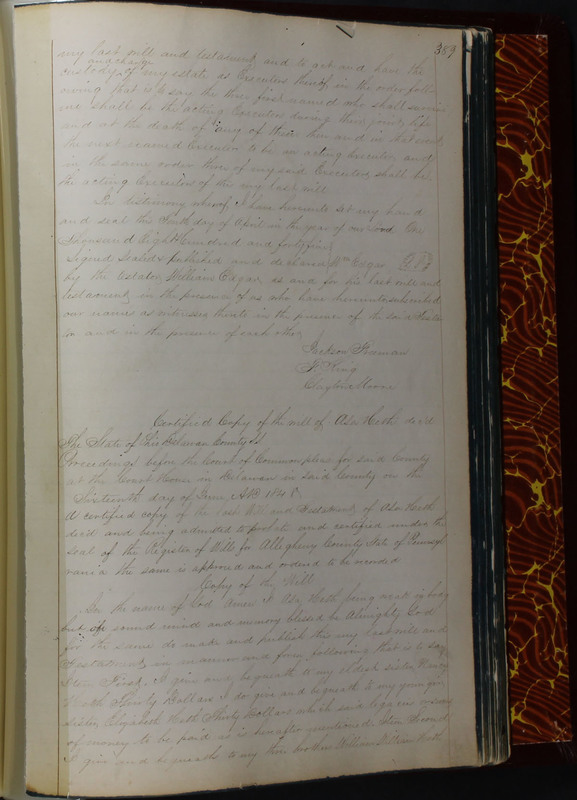 383
my last will and testament, and to act and have the
and charge
custody of my estate as Executors thereof, in the order foll-
owing that is to say the three first named who shall survive
me shall be the acting Executors during their joint life
and at the death of any of these then and in that event
the next named Executor to be an acting Executor, and
in the same order three of my said Executors shall be
the acting Executors of this my last will
In testimony whereof I have hereunto set my hand
and seal this Tenth day of April in the year of our Lord One
Thousand Eight hundred and forty five
Signed Sealed & published and declared Wm Edgar
by the testator William Edgar, as and for his last will and
testament, in the presence of us who have hereunto subscribed
our names as witnesses thereto in the presence of the said Testa-
tor and in the presence of each other
Jackson
King
Clayton Moore
Certified Copy of the will of Asa Heath dec'd
The State of Ohio County Ss
Proceedings before the Court of Common pleas for said County
at the Court House in Delaware in said County on the
Sixteenth day of June, AD 184
A certified copy of the last Will and Testament, of Asa Heath
dec'd and being admitted to probate and certified under the
seal of the Register of Wills for Allegheny County State of Pennsyl
vania the same is approved and ordered to be recorded
Copy of the Will
In the name of God Amen I Asa Heath being weak in body
but of sound mind and memory blessed be Almighty God
for the same do make and publish this my last will and
Testament, in manner and form following that is to say
Item First. I give and bequeath to my eldest sister Nancy
Heath Thirty Dollars I do give and bequeath to my younger
sister Elizabeth Heath Thirty Dollars which said legacies
of money to be paid as is herein after mentioned Item Second
I give and bequeath to my three brothers William Heath